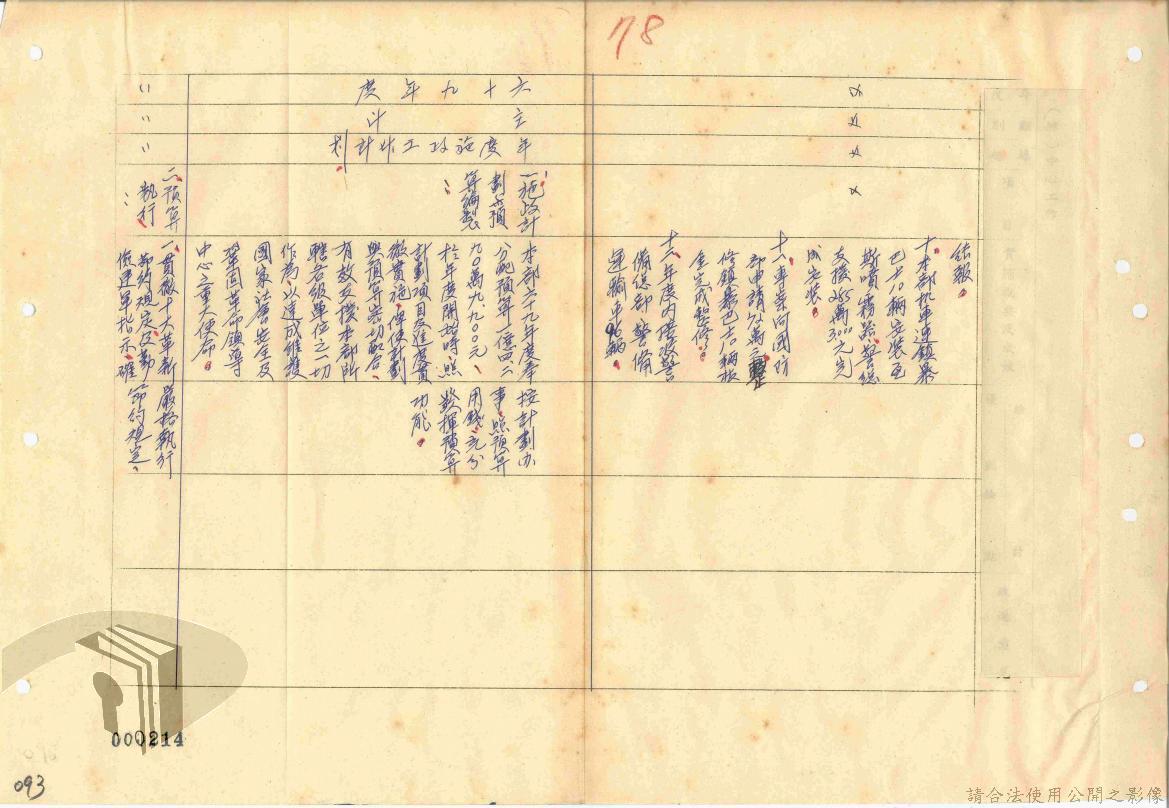 78
〃
〃
〃
六十九年度
主計
年度施政工作計劃
結報。
十、本部机車連鎮暴
巴士10輛安裝瓦
斯噴霧器,警總
支援265萬3000元完
成安裝。
十一、專案向國防
部申請
修鎮暴巴士10輛
全完成整修。
備總部警備
運輸車
一、施政計
劃與預
算編製
本部六十九年度奉
分配預算一億四二
九〇萬九、九〇〇元、
於年度開始時、照
計劃項目及進度貫
徹實施、俾使計劃
與預算密切配合、
有效支援本部所
轄各級單位之一切
作為、以達成維護
國家法層安全及
鞏固革命領導
中心之重大使命。
按計劃办
事、照預算
用錢、充分
發揮預算
功能。
二、預算
執行
一、貫徹十大革新
節約規定及勤
儉建軍指示、確
嚴格執行
節約規定、
000214
093
請合法使用公開之影像